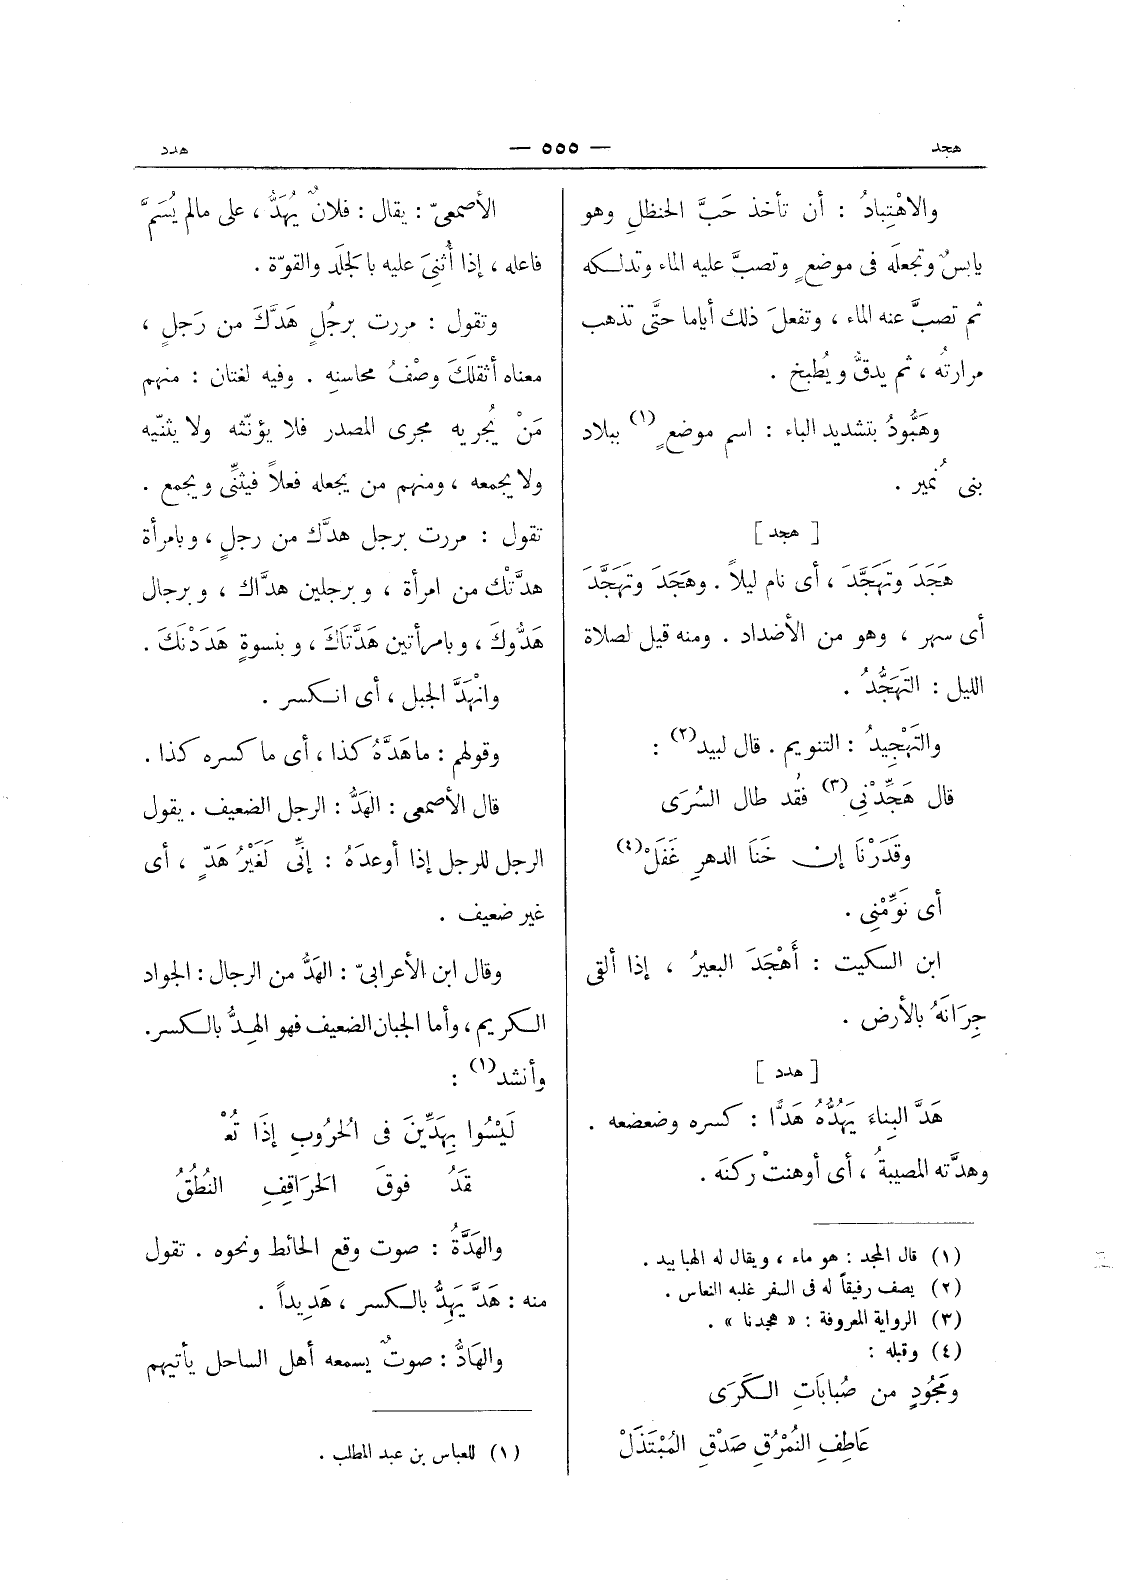 هجد — ٥٥٥ — هدد
والاهْتِبادُ : أن تأخذ حَبَّ الحنظلِ وهو
يابسٌ وتجعلَه فى موضعٍ وتصبَّ عليه الماء وتدلـكه
ثم تصبَّ عنه الماء ، وتفعلَ ذلك أياما حتَّى تذهب
مرارتُه ، ثم يدقُّ ويُطبخ .
وهَبُّودُ بتشديد الباء : اسم موضعٍ (١) ببلاد
بنى نُمير .
[ هجد ]
هَجَدَ وتَهَجَّدَ ، أى نام ليلاً . وهَجَدَ وتَهَجَّدَ
أى سهر ، وهو من الأضداد . ومنه قيل لصلاة
الليل : التَهَجُّدُ .
والتَهْجِيدُ : التنويم . قال لبيد(٢) :
قال هَجِّدْنِى(٣) فقُد طال السُرَى
وقَدَرْنَا إن خَنَا الدهرِ غَفَلْ(٤)
أى نَوِّمْنِى .
ابن السكيت : أَهْجَدَ البعيرُ ، إذا ألقى
جِرَانَهُ بالأرض .
[ هدد ]
هَدَّ البِناءَ يَهُدُّهُ هَدًّا : كسره وضعضعه .
وهدَّته المصيبةُ ، أى أوهنتْ ركنَه .
(١) قال المجد : هو ماء ، ويقال له الهبابيد .
(٢) يصف رفيقاً له فى السفر غلبه النعاس .
(٣) الرواية المعروفة : « هجدنا » .
(٤) وقبله :
ومَجُودٍ من صُبابَاتِ الـكَرَى
عَاطِفِ النُمْرُقِ صَدْقِ المُبْتَذَلْ
الأصمعىّ : يقال : فلانٌ يُهَدُّ ، على مالم يُسَمَّ
فاعله ، إذا أُثْنِىَ عليه بالجَلَد والقوّة .
وتقول : مررت برجُلٍ هَدَّكَ من رَجلٍ ،
معناه أثقلَكَ وصْفُ محاسنِه . وفيه لغتان : منهم
مَنْ يُجريه مجرى المصدر فلا يؤنّثه ولا يثنّيه
ولا يجمعه ، ومنهم من يجعله فعلاً فيثنِّى ويجمع .
تقول : مررت برجل هدَّك من رجلٍ ، وبامرأة
هدَّتْك من امرأة ، وبرجلين هدَّاك ، وبرجال
هَدُّوكَ ، وبامرأتين هَدَّتَاكَ ، وبنسوةٍ هَدَدْنَكَ .
وانْهَدَّ الجبل ، أى انـكسر .
وقولهم : ما هَدَّهُ كذا ، أى ما كسره كذا .
قال الأصمعى : الهَدُّ : الرجل الضعيف . يقول
الرجل للرجل إذا أوعدَهُ : إنِّى لَغَيْرُ هَدٍّ ، أى
غير ضعيف .
وقال ابن الأعرابىّ : الهَدُّ من الرجال : الجواد
الـكريم ، وأما الجبان الضعيف فهو الهِدُّ بالـكسر.
وأنشد(١) :
لَيْسُوا بِهِدِّينَ فى الحُرُوبِ إذَا تُعْ
قَدُ فوقَ الحَرَاقِفِ النُطُقُ
والهَدَّةُ : صوت وقع الحائط ونحوه . تقول
منه : هَدَّ يَهِدُّ بالـكسر ، هَدِيداً .
والهَادُّ : صوتٌ يسمعه أهل الساحل يأتيهم
(١) للعباس بن عبد المطلب .